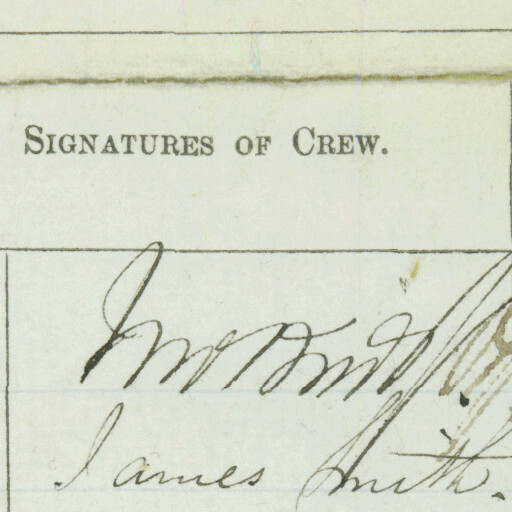 SIGNATURES OF CREW.
Jno
James Smith.